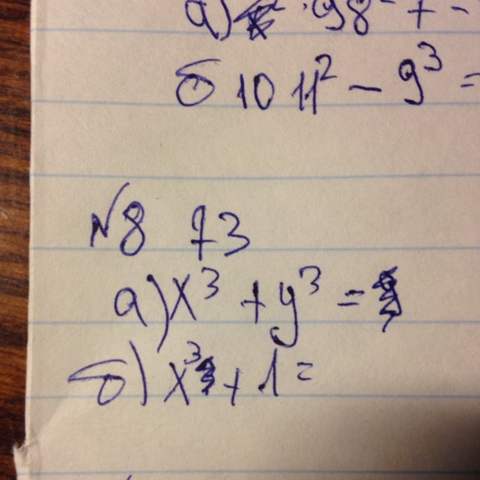 а) · 98² + -
б 10 11² - 9³ =
№8 73
а) x³ + y³ =
б) x³ + 1 =